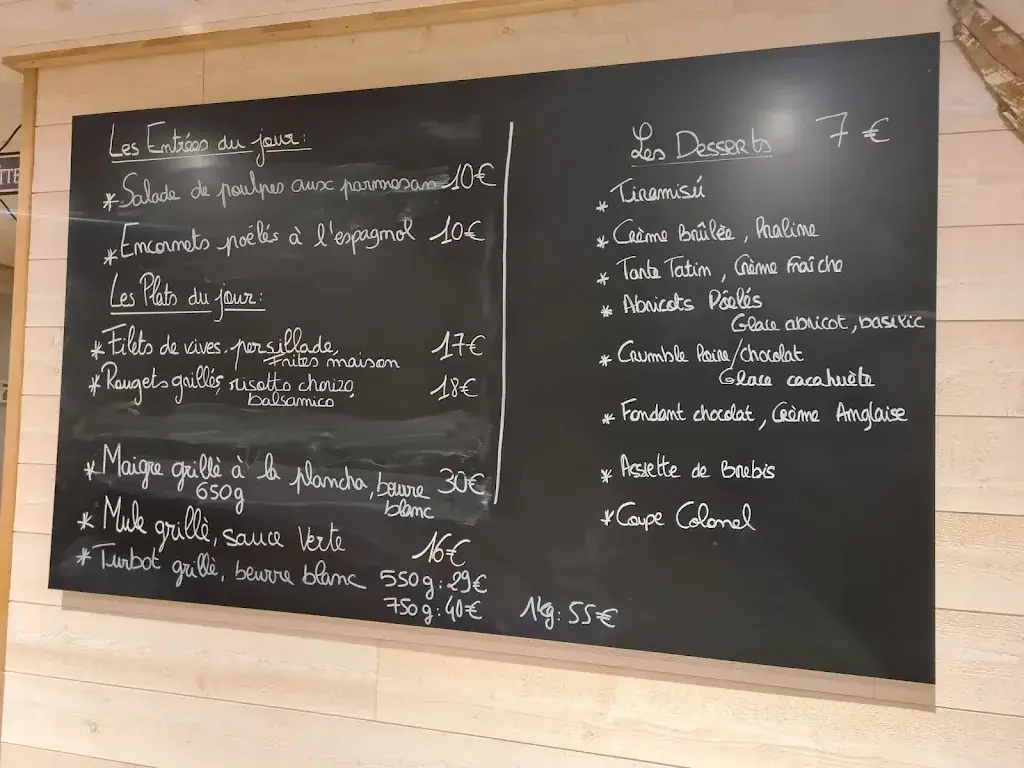 Les Entrées du jour:
*Salade de poulpes aux parmesan 10€
*Encornets poêlés à l'espagnol 10€
Les Plats du jour:
*Filets de vives, persillade, 17€
Frites maison
*Rougets grillés, risotto chorizo, 18€
balsamico
*Maigre grillè à la plancha, beurre 30€
650g blanc
*Mule grillè, sauce Verte 16€
*Turbot grillè, beurre blanc 550g: 29€
750g: 40€ 1kg: 55€
Les Desserts 7€
*Tiramisú
*Crème Brûlée, Praline
*Tarte Tatin, Crème Fraîche
*Abricots Poêlés
Glace abricot, basilic
*Crumble Poire/chocolat
Glace cacahuète
*Fondant chocolat, Crème Anglaise
*Assiette de Brebis
*Coupe Colonel